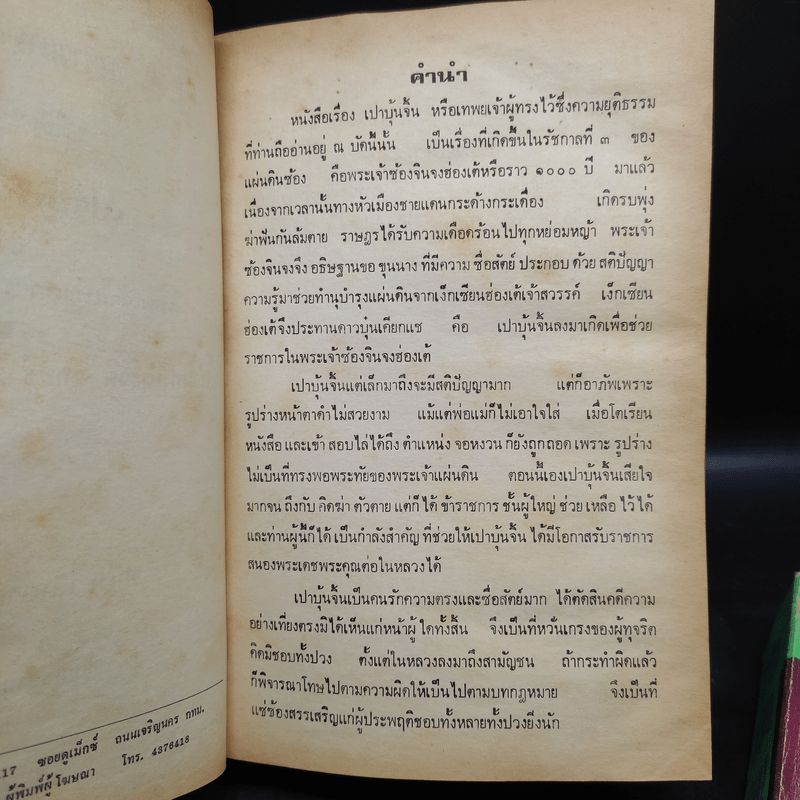 คำนำ
หนังสือเรื่อง เปาบุ้นจิ้น หรือเทพยเจ้าผู้ทรงไว้ซึ่งความยุติธรรม
ที่ท่านถืออ่านอยู่ ณ บัดนี้นั้น เป็นเรื่องที่เกิดขึ้นในรัชกาลที่ ๓ ของ
แผ่นดินซ้อง คือพระเจ้าซ้องจินจงฮ่องเต้หรือราว ๑๐๐๐ ปี มาแล้ว
เนื่องจากเวลานั้นทางหัวเมืองชายแดนกระด้างกระเดื่อง เกิดรบพุ่ง
ฆ่าฟันกันล้มตาย ราษฎรได้รับความเดือดร้อนไปทุกหย่อมหญ้า พระเจ้า
ซ้องจินจงจึง อธิษฐานขอ ขุนนาง ที่มีความ ซื่อสัตย์ ประกอบ ด้วย สติปัญญา
ความรู้มาช่วยทำนุบำรุงแผ่นดินจากเง็กเซียนฮ่องเต้เจ้าสวรรค์ เง็กเซียน
ฮ่องเต้จึงประทานดาวบุ๋นเคียกแช คือ เปาบุ้นจิ้นลงมาเกิดเพื่อช่วย
ราชการในพระเจ้าซ้องจินจงฮ่องเต้
เปาบุ้นจิ้นแต่เล็กมาถึงจะมีสติปัญญามาก แต่ก็อาภัพเพราะ
รูปร่างหน้าตาดำไม่สวยงาม แม้แต่พ่อแม่ก็ไม่เอาใจใส่ เมื่อโตเรียน
หนังสือ และเข้า สอบไล่ได้ถึง ตำแหน่ง จอหงวน ก็ยังถูกถอด เพราะ รูปร่าง
ไม่เป็นที่ทรงพอพระทัยของพระเจ้าแผ่นดิน ตอนนี้เองเปาบุ้นจิ้นเสียใจ
มากจน ถึงกับ คิดฆ่า ตัวตาย แต่ก็ ได้ ข้าราชการ ชั้นผู้ใหญ่ ช่วย เหลือ ไว้ ได้
และท่านผู้นี้ก็ได้ เป็นกำลังสำคัญ ที่ช่วยให้เปาบุ้นจิ้น ได้มีโอกาสรับราชการ
สนองพระเดชพระคุณต่อในหลวงได้
เปาบุ้นจิ้นเป็นคนรักความตรงและซื่อสัตย์มาก ได้ตัดสินคดีความ
อย่างเที่ยงตรงมิได้เห็นแก่หน้าผู้ใดทั้งสิ้น จึงเป็นที่หวั่นเกรงของผู้ทุจริต
คิดมิชอบทั้งปวง ตั้งแต่ในหลวงลงมาถึงสามัญชน ถ้ากระทำผิดแล้ว
ก็พิจารณาโทษไปตามความผิดให้เป็นไปตามบทกฎหมาย จึงเป็นที่
แซ่ซ้องสรรเสริญแก่ผู้ประพฤติชอบทั้งหลายทั้งปวงยิ่งนัก
17 ซอยดูเม็กซ์ ถนนเจริญนคร กทม.
ผู้พิมพ์ผู้โฆษณา โทร. 4376418